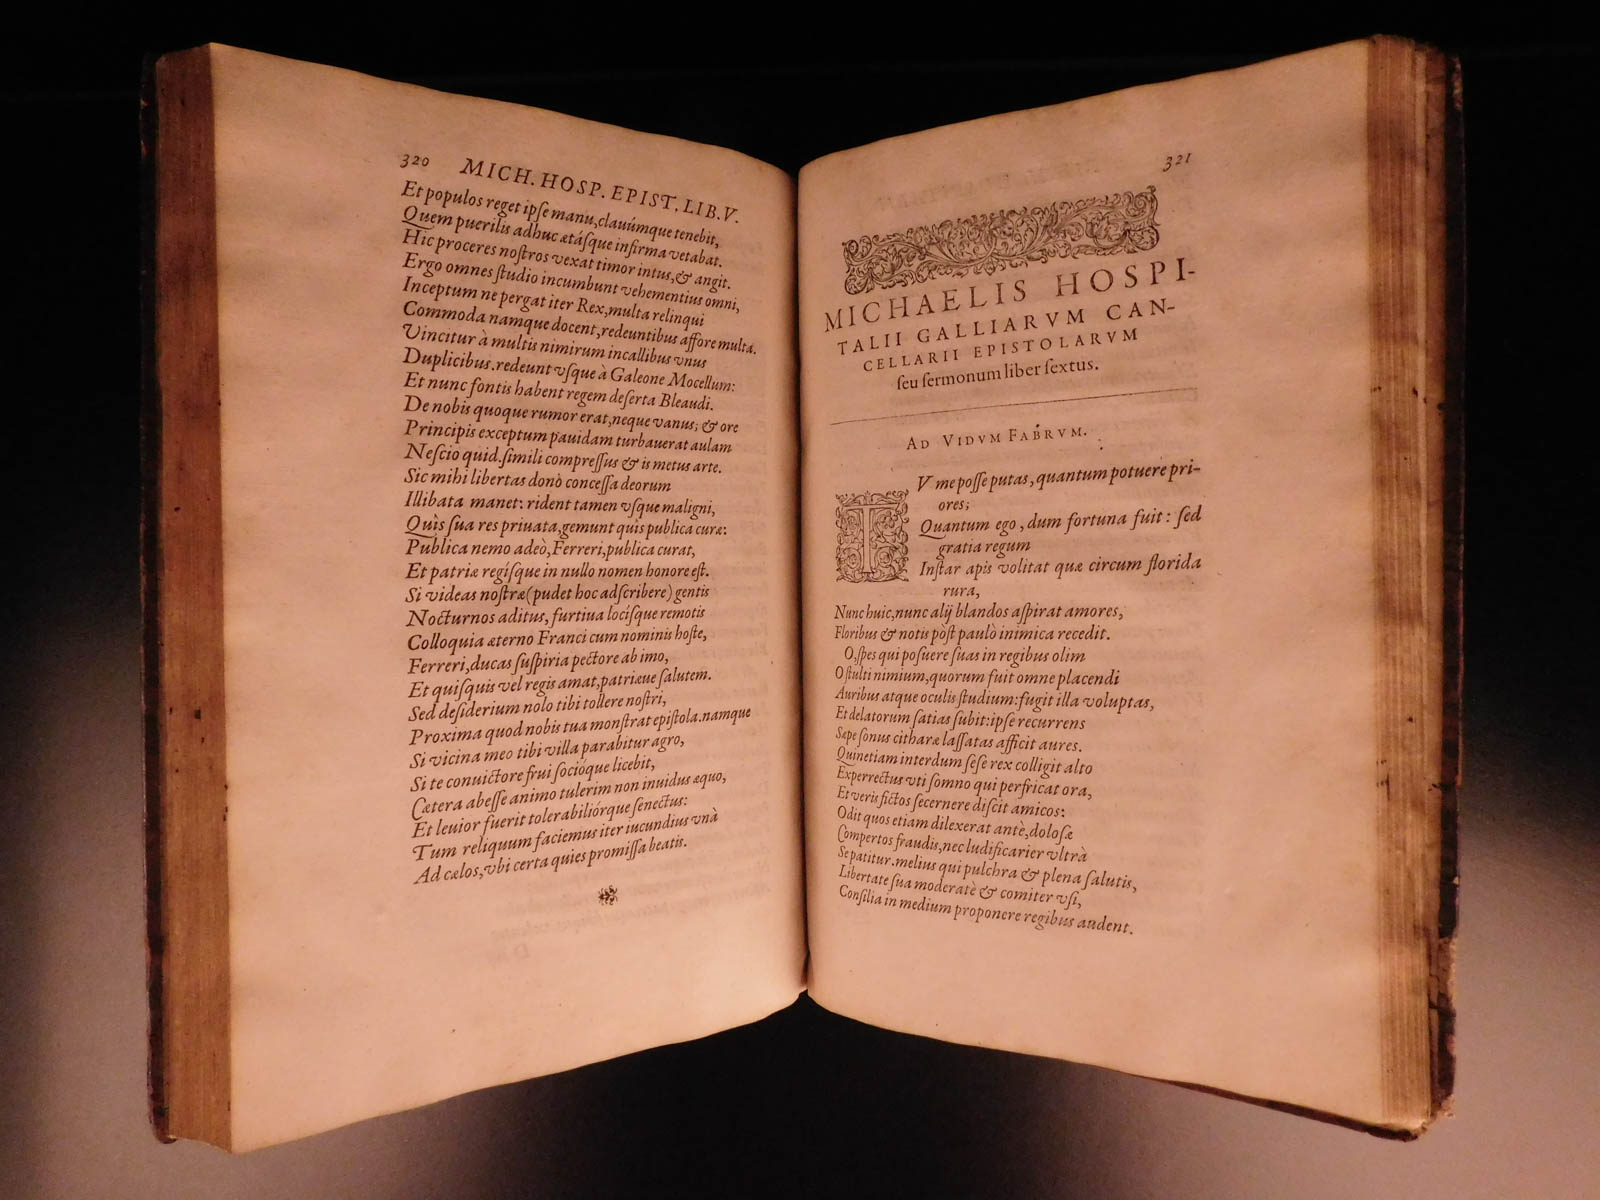 320 MICH. HOSP. EPIST. LIB. V.
Et populos reget ipse manu, clauúmque tenebit,
Quem puerilis adhuc ætásque infirma vetabat.
Hic proceres nostros vexat timor intus, & angit.
Ergo omnes studio incumbunt vehementius omni,
Inceptum ne pergat iter Rex, multa relinqui
Commoda namque docent, redeuntibus affore multa.
Vincitur à multis nimirum incallibus vnus
Duplicibus. redeunt vsque à Galeone Mocellum:
Et nunc fontis habent regem deserta Bleaudi.
De nobis quoque rumor erat, neque vanus; & ore
Principis exceptum pauidam turbauerat aulam
Nescio quid. simili compressus & is metus arte.
Sic mihi libertas donò concessa deorum
Illibata manet: rident tamen vsque maligni,
Quîs sua res priuata, gemunt quîs publica curæ:
Publica nemo adeò, Ferreri, publica curat,
Et patriæ regísque in nullo nomen honore est.
Si videas nostræ (pudet hoc adscribere) gentis
Nocturnos aditus, furtiua locísque remotis
Colloquia æterno Franci cum nominis hoste,
Ferreri, ducas suspiria pectore ab imo,
Et quisquis vel regis amat, patriæve salutem.
Sed desiderium nolo tibi tollere nostri,
Proxima quod nobis tua monstrat epistola. namque
Si vicina meo tibi villa parabitur agro,
Si te conuictore frui socióque licebit,
Cætera abesse animo tulerim non inuidus æquo,
Et leuior fuerit tolerabiliórque senectus:
Tum reliquum faciemus iter iucundius vnà
Ad cælos, vbi certa quies promissa beatis.
321
MICHAELIS HOSPI-
TALII GALLIARVM CAN-
CELLARII EPISTOLARVM
seu sermonum liber sextus.
AD VIDVM FABRVM.
TV me posse putas, quantum potuere pri-
ores;
Quantum ego, dum fortuna fuit: sed
gratia regum
Instar apis volitat quæ circum florida
rura,
Nunc huic, nunc alij blandos aspirat amores,
Floribus & notis pòst paulò inimica recedit.
O, spes qui posuere suas in regibus olim
O stulti nimium, quorum fuit omne placendi
Auribus atque oculis studium: fugit illa voluptas,
Et delatorum satias subit: ipse recurrens
Sæpe sonus citharæ lassatas afficit aures.
Quinetiam interdum sese rex colligit alto
Experrectus vti somno qui perfricat ora,
Et veris fictos secernere discit amicos:
Odit quos etiam dilexerat antè, dolosæ
Compertos fraudis, nec ludificarier vltrà
Se patitur. melius qui pulchra & plena salutis,
Libertate sua moderatè & comiter vsi,
Consilia in medium proponere regibus audent.